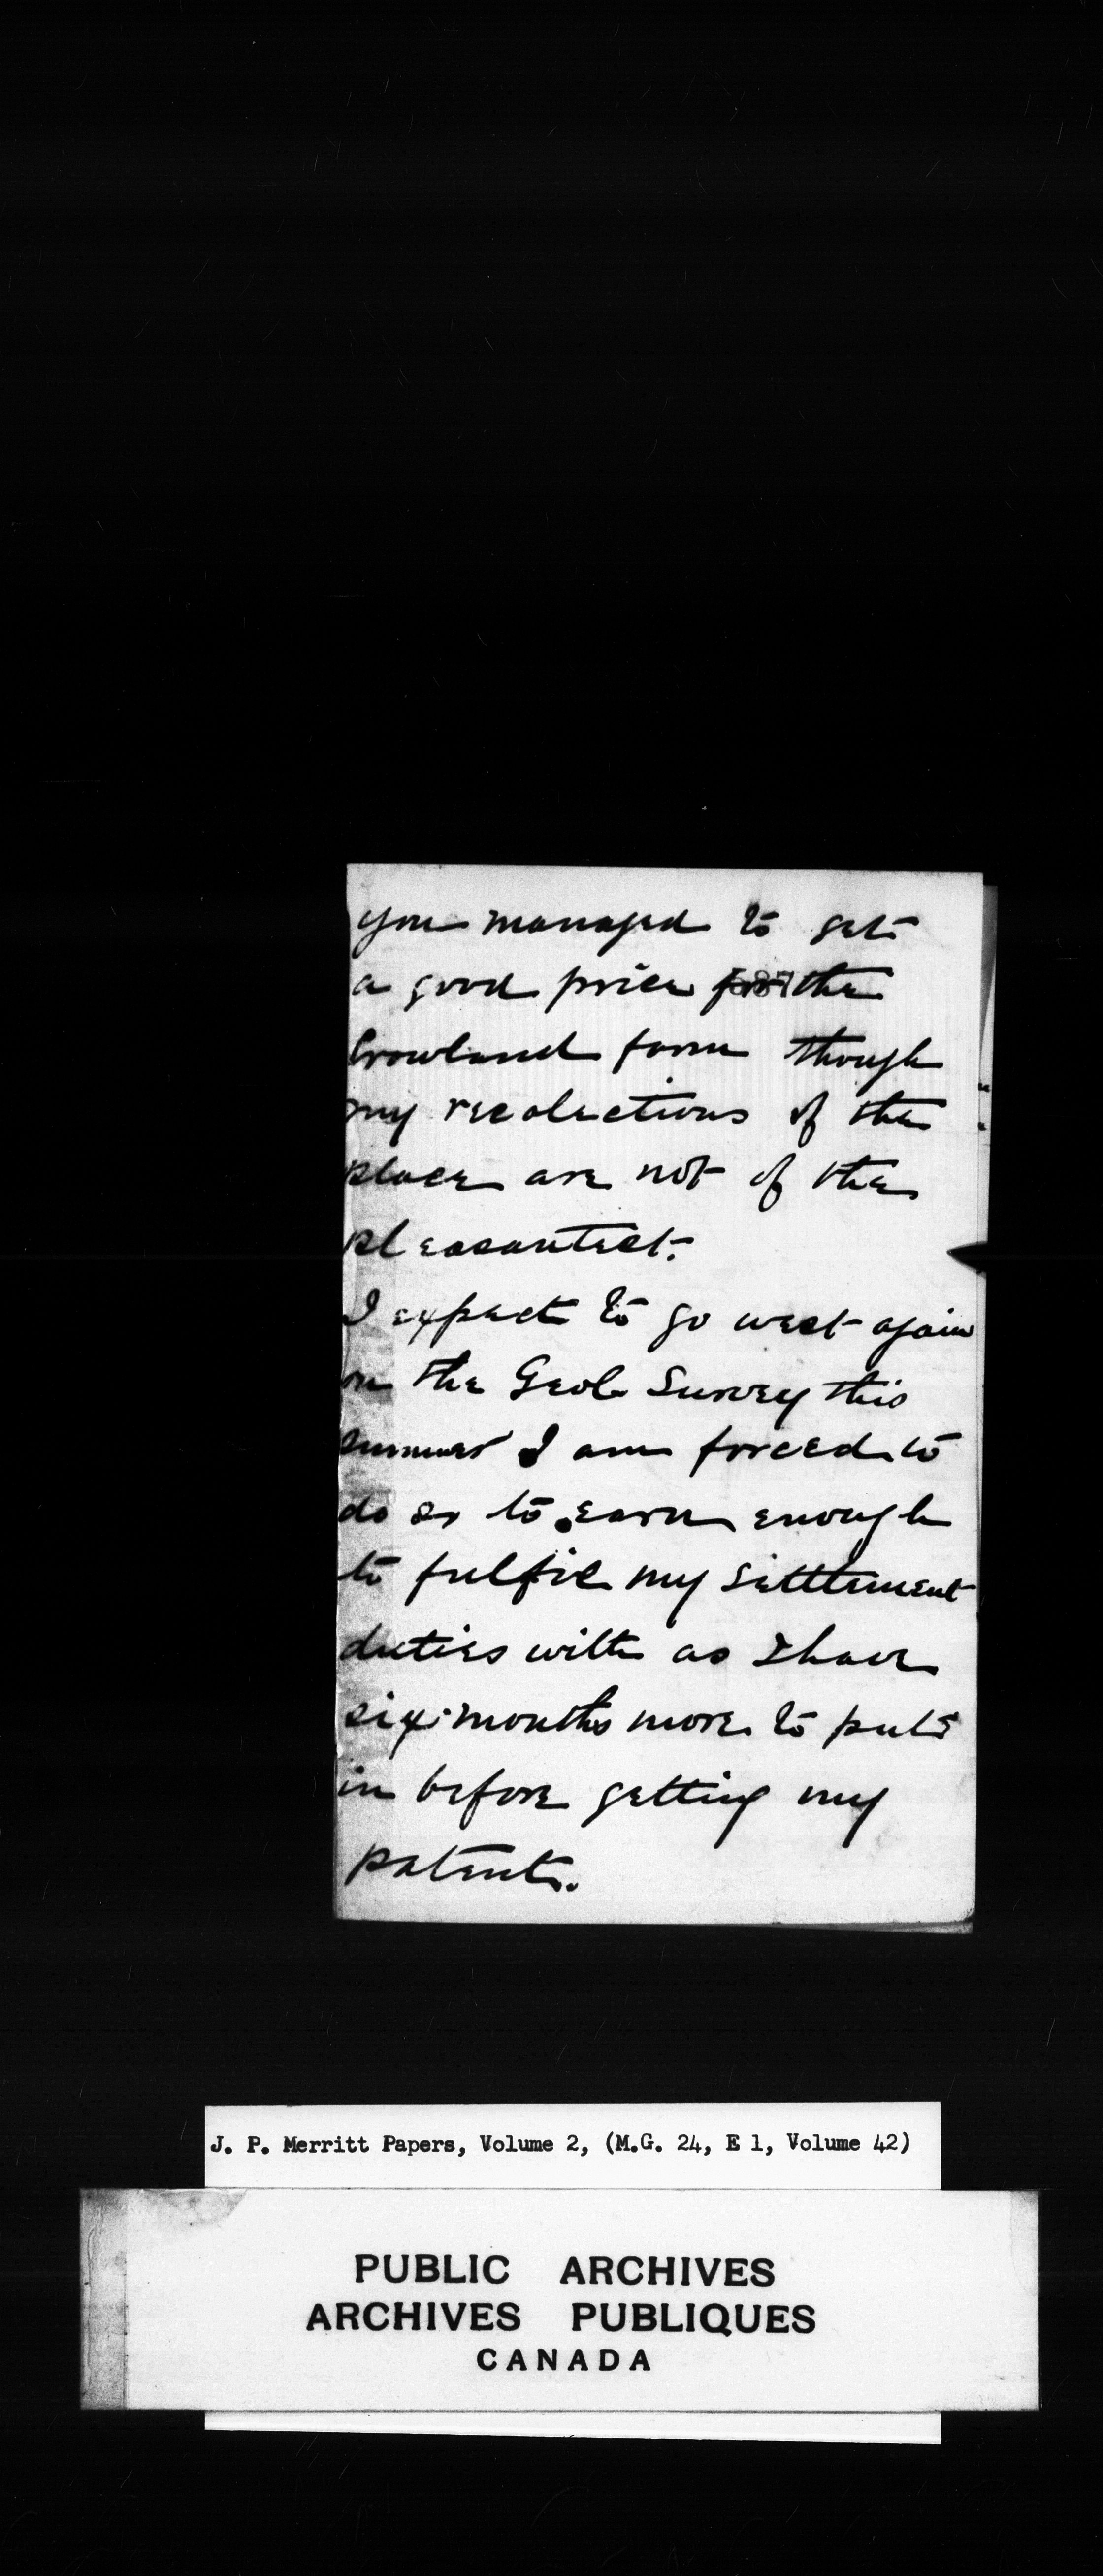 you managed to get
a good price for the
Crowland farm though
my recolections of the
place are not of the
pleasantest.
I expect to go west again
on the Geol Survey this
summer I am forced to
do so to earn enough
to fulfil my settlement
duties with as I have
six months more to put
in before getting my
patent.
J. P. Merritt Papers, Volume 2, (M.G. 24, E 1, Volume 42)
PUBLIC ARCHIVES
ARCHIVES PUBLIQUES
CANADA